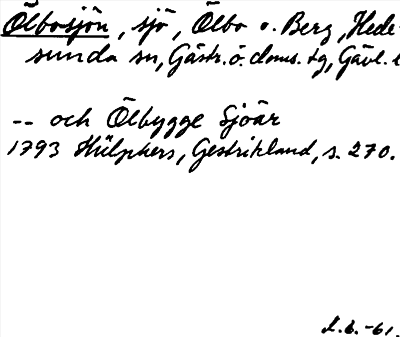 Ölbosjön, sjö, Ölbo o. Berg, Hede-
sunda sn, Gästr. ö. doms. tg, Gävl. l
-- och Ölbygge Sjöär
1793 Hülphers, Gestrikland, s. 270.
L.b.-61.